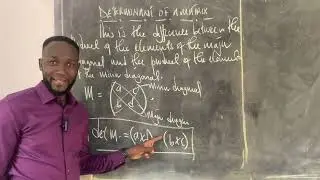 DETERMINANT OF A MATRIX
This is the difference between the
product of the elements of the major
diagonal and the product of the elements
of the minor diagonal.
M = (a c Minor diagonal
b d)
Major diagonal
det M = (a×d) - (b×c)